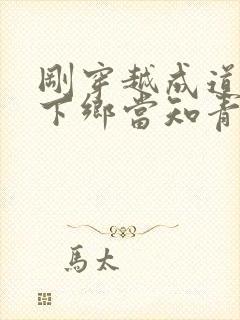 剛穿越成道
下鄉當知青
馬太